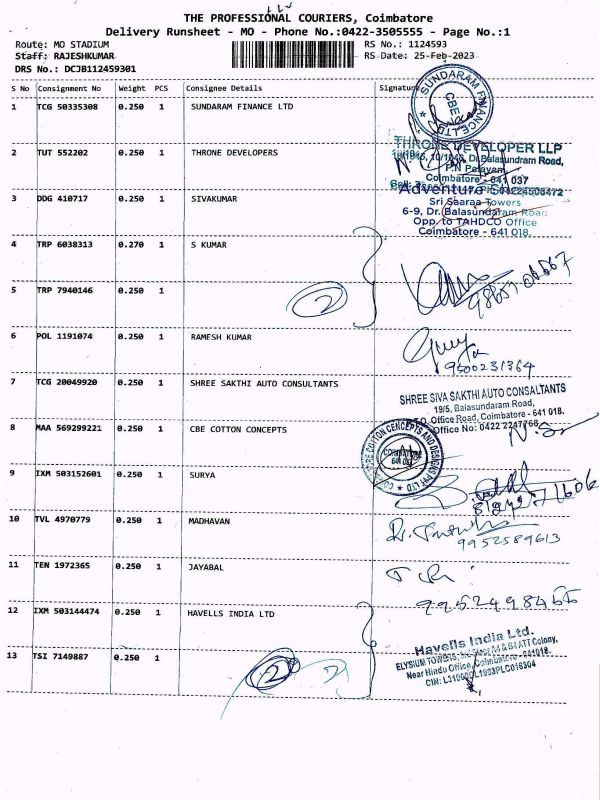 THE PROFESSIONAL COURIERS, Coimbatore
Delivery Runsheet - MO - Phone No.:0422-3505555 - Page No.:1
Route: MO STADIUM RS No.: 1124593
Staff: RAJESHKUMAR RS Date: 25-Feb-2023
DRS No.: DCJB112459301
S No Consignment No Weight PCS Consignee Details Signature
SUNDARAM FINANCE LTD.
CBE
1 TCG 50335308 0.250 1 SUNDARAM FINANCE LTD
THRONE DEVELOPER LLP
Dr. Balasundram Road,
P.N Palayam,
Coimbatore - 641 037
2 TUT 552202 0.250 1 THRONE DEVELOPERS
Adventure
Sri Saaraa Towers
6-9, Dr. Balasundaram Road
Opp. to TAHDCO Office
Coimbatore - 641 018.
3 DDG 410717 0.250 1 SIVAKUMAR
4 TRP 6038313 0.270 1 S KUMAR
5 TRP 7940146 0.250 1
2
6 POL 1191074 0.250 1 RAMESH KUMAR
9600231364
7 TCG 20049920 0.250 1 SHREE SAKTHI AUTO CONSULTANTS
SHREE SIVA SAKTHI AUTO CONSALTANTS
19/5, Balasundaram Road,
Office Road, Coimbatore - 641 018.
Office No: 0422 2247768
8 MAA 569299221 0.250 1 CBE COTTON CONCEPTS
COTTON CENCEPTS AND DESIGNS PVT LTD
COIMBATORE
641 037
9 IXM 503152601 0.250 1 SURYA
10 TVL 4970779 0.250 1 MADHAVAN
9952589613
11 TEN 1972365 0.250 1 JAYABAL
12 IXM 503144474 0.250 1 HAVELLS INDIA LTD
Havells India Ltd.
ELYSIUM TOWERS, ATT Colony,
Near Hindu Office, Coimbatore - 641018.
13 TSI 7149887 0.250 1
2 2